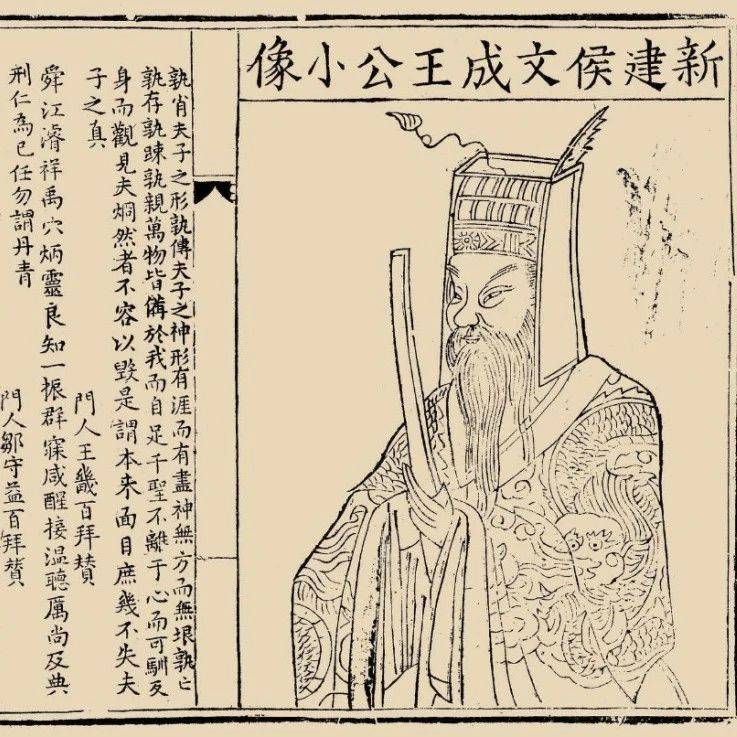 新建侯文成王公小像
孰肖夫子之形孰傳夫子之神形有涯而有盡神無方而無垠孰亡
孰存孰踈孰親萬物皆備於我而自足千聖不離于心而可馴反
身而觀見夫烱然者不容以毀是謂本来面目庶幾不失夫
子之真
門人王畿百拜賛
舜江濬祥禹穴炳靈良知一振群寐咸醒接溫聽厲尚及典
刑仁為己任勿謂丹青
門人鄒守益百拜賛